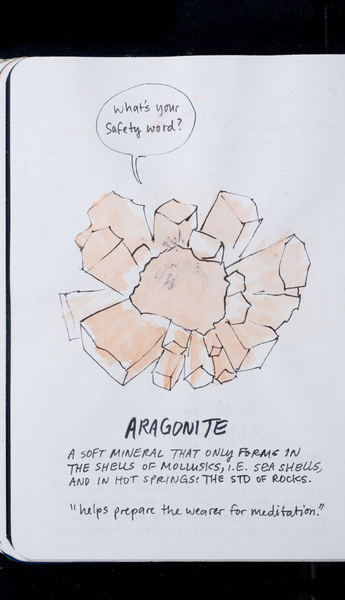 what's your
Safety word?
ARAGONITE
A SOFT MINERAL THAT ONLY FORMS IN
THE SHELLS OF MOLLUSKS, I.E. SEA SHELLS,
AND IN HOT SPRINGS: THE STD OF ROCKS.
"helps prepare the wearer for meditation."